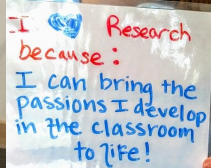 I Research
because:
I can bring the
passions I develop
in the classroom
to life!